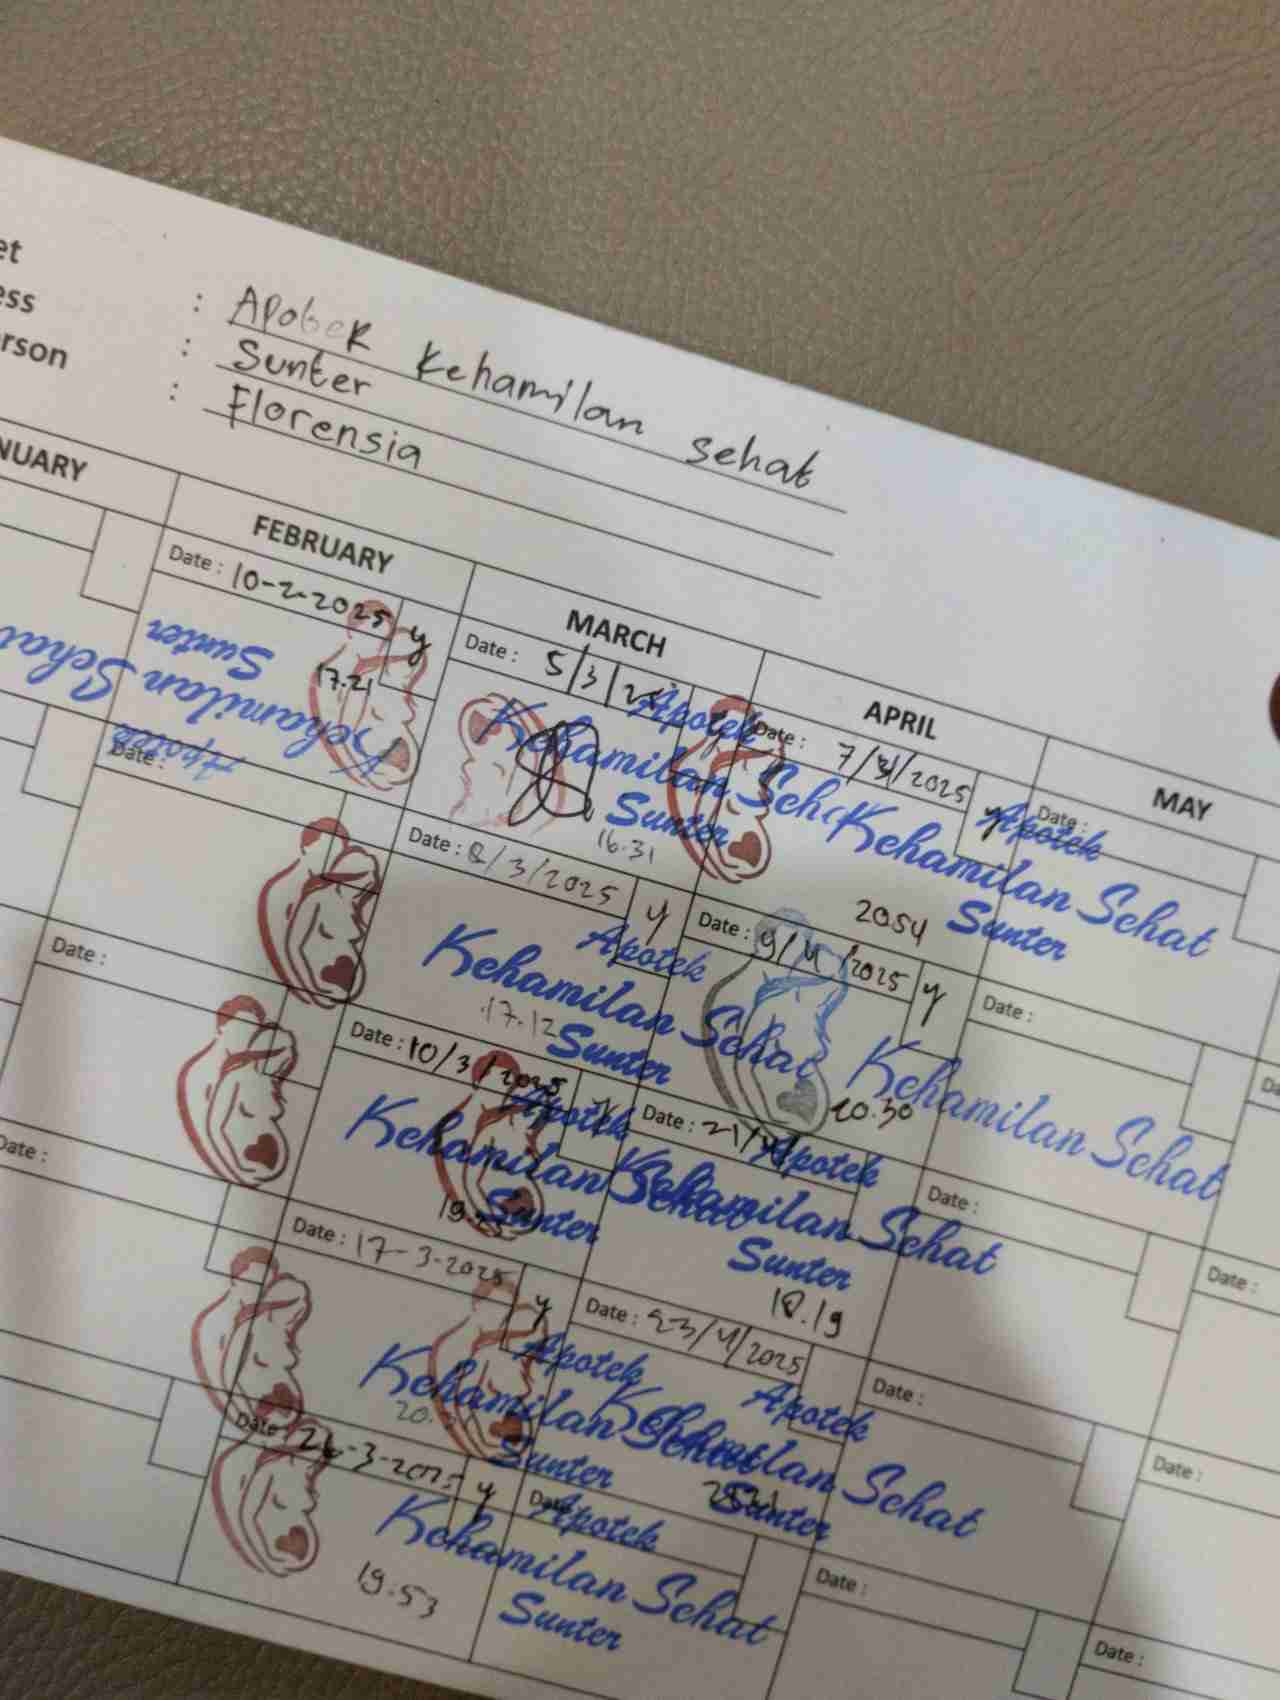 et : Apotek Kehamilan Sehat
ess : Sunter
rson : Florensia
NUARY
FEBRUARY
MARCH
APRIL
MAY
Date : 10-2-2025 y
17.21
Apotek
Kehamilan Sehat
Sunter
Date :
Date :
Date :
Date : 5/3/25
Apotek
Kehamilan Seh
Sunter
16.31
Date : 8/3/2025 y
Apotek
Kehamilan Sehat
17.12 Sunter
Date : 10/3/2025
Apotek
Kehamilan Sehat
Sunter
Date : 17-3-2025 y
Apotek
Kehamilan Sehat
20.
Sunter
Date : 3-2025 y
Apotek
Kehamilan Sehat
Sunter
19.53
Date : 7/ /2025 y
Apotek
Kehamilan Sehat
2054 Sunter
Date : 9/4/2025 y
Kehamilan Sehat
20.30
Date : 21/
Apotek
Kehamilan Sehat
Sunter
18.19
Date : 23/4/2025
Apotek
Kehamilan Sehat
Sunter
Date
Date :
Date :
Date :
Date :
Date :
Date :
Date :
Date :